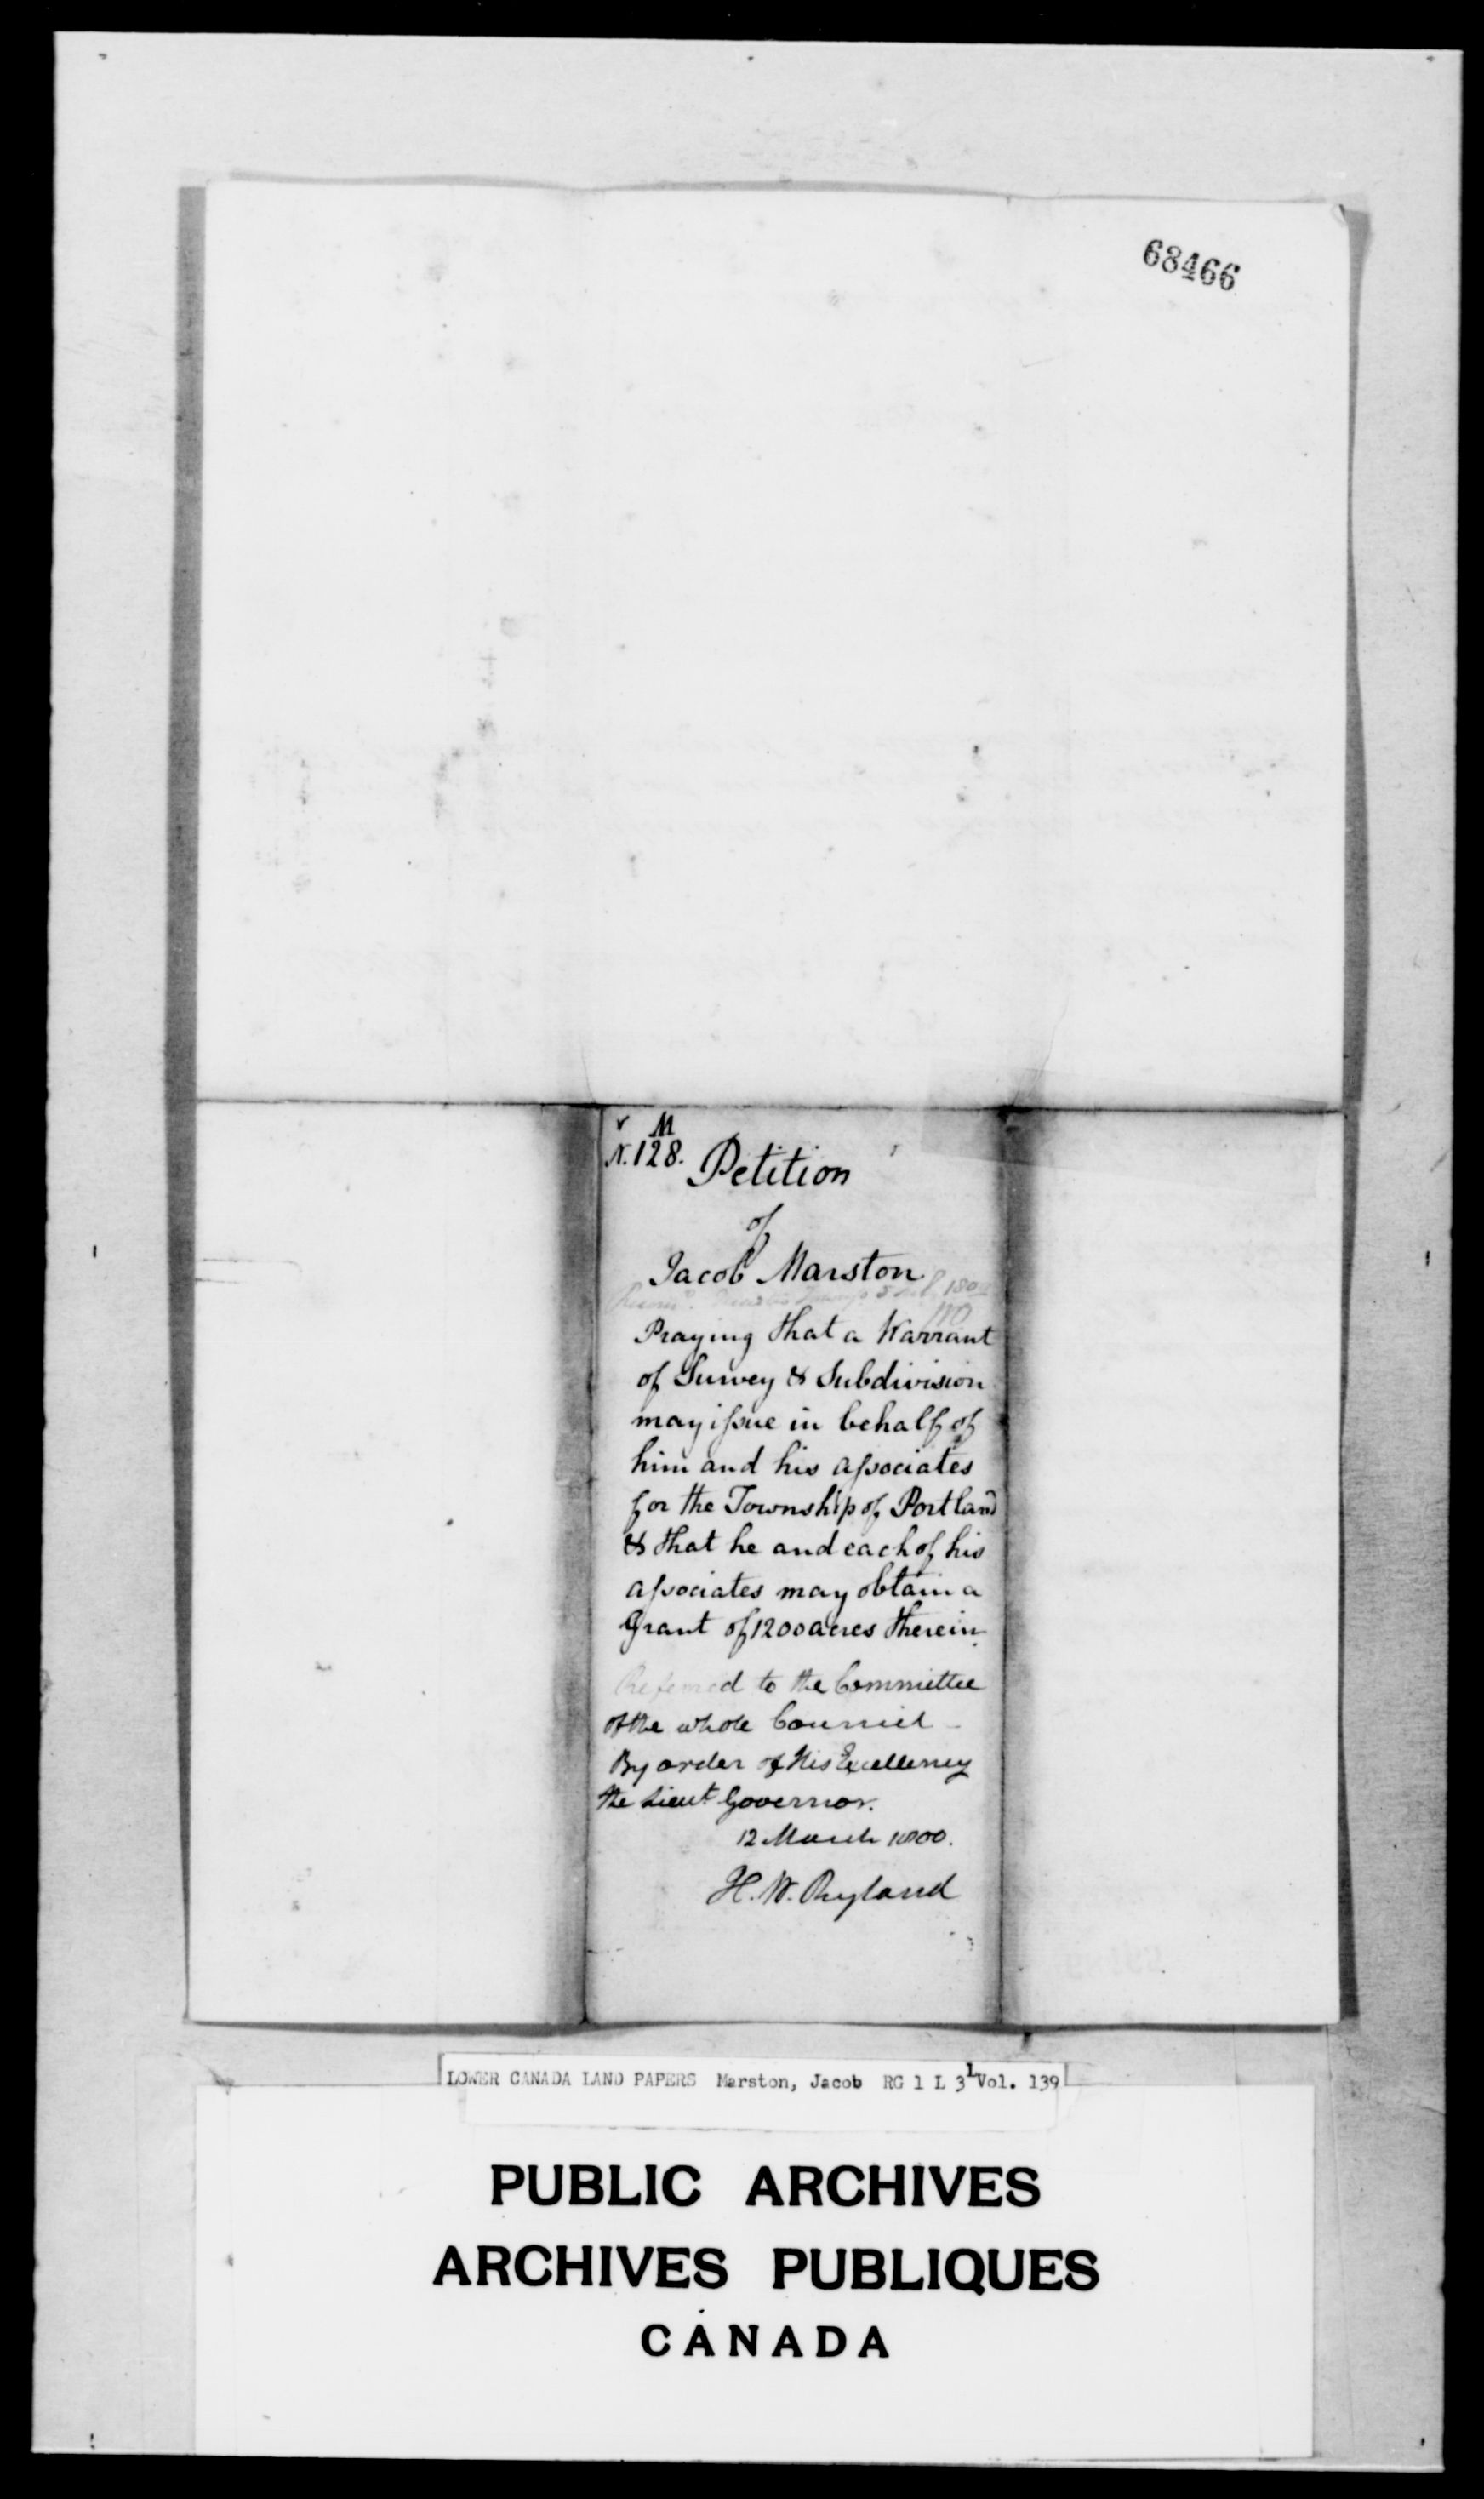 68466
M
N. 128.
Petition
of
Jacob Marston
Praying that a Warrant
of Survey & Subdivision
may issue in behalf of
him and his associates
for the Township of Portland
& that he and each of his
associates may obtain a
Grant of 1200 acres therein.
Referred to the Committee
of the whole Council
By order of His Excellency
the Lieut Governor.
12 March 1800.
H. W. Ryland
LOWER CANADA LAND PAPERS Marston, Jacob RG 1 L 3 L Vol. 139
PUBLIC ARCHIVES
ARCHIVES PUBLIQUES
CANADA